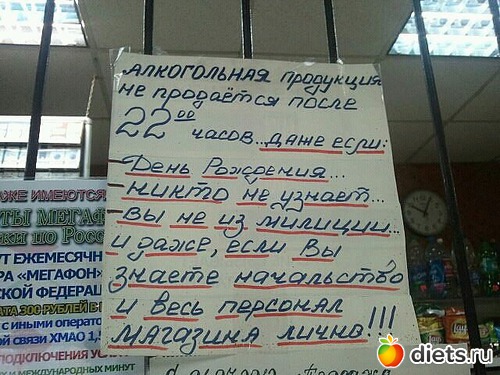 АЛКОГОЛЬНАЯ продукция
не продаётся после
22⁰⁰ часов... даже если:
- День Рождения...
- никто не узнает...
- Вы не из милиции...
и даже, если Вы
знаете начальство
и весь персонал
магазина лично!!!
ЖЕ ИМЕЮТСЯ
ТЫ МЕГАФ
ки по Росси
УТ ЕЖЕМЕСЯЧН
РА «МЕГАФОН»
СКОЙ ФЕДЕРАЦ
АТА 300 РУБЛЕЙ В
с иными операто
й связи ХМАО 1,
ПОДКЛЮЧЕНИЯ УСЛ
И МЕЖДУНАРОДНЫХ МИНУТ
diets.ru